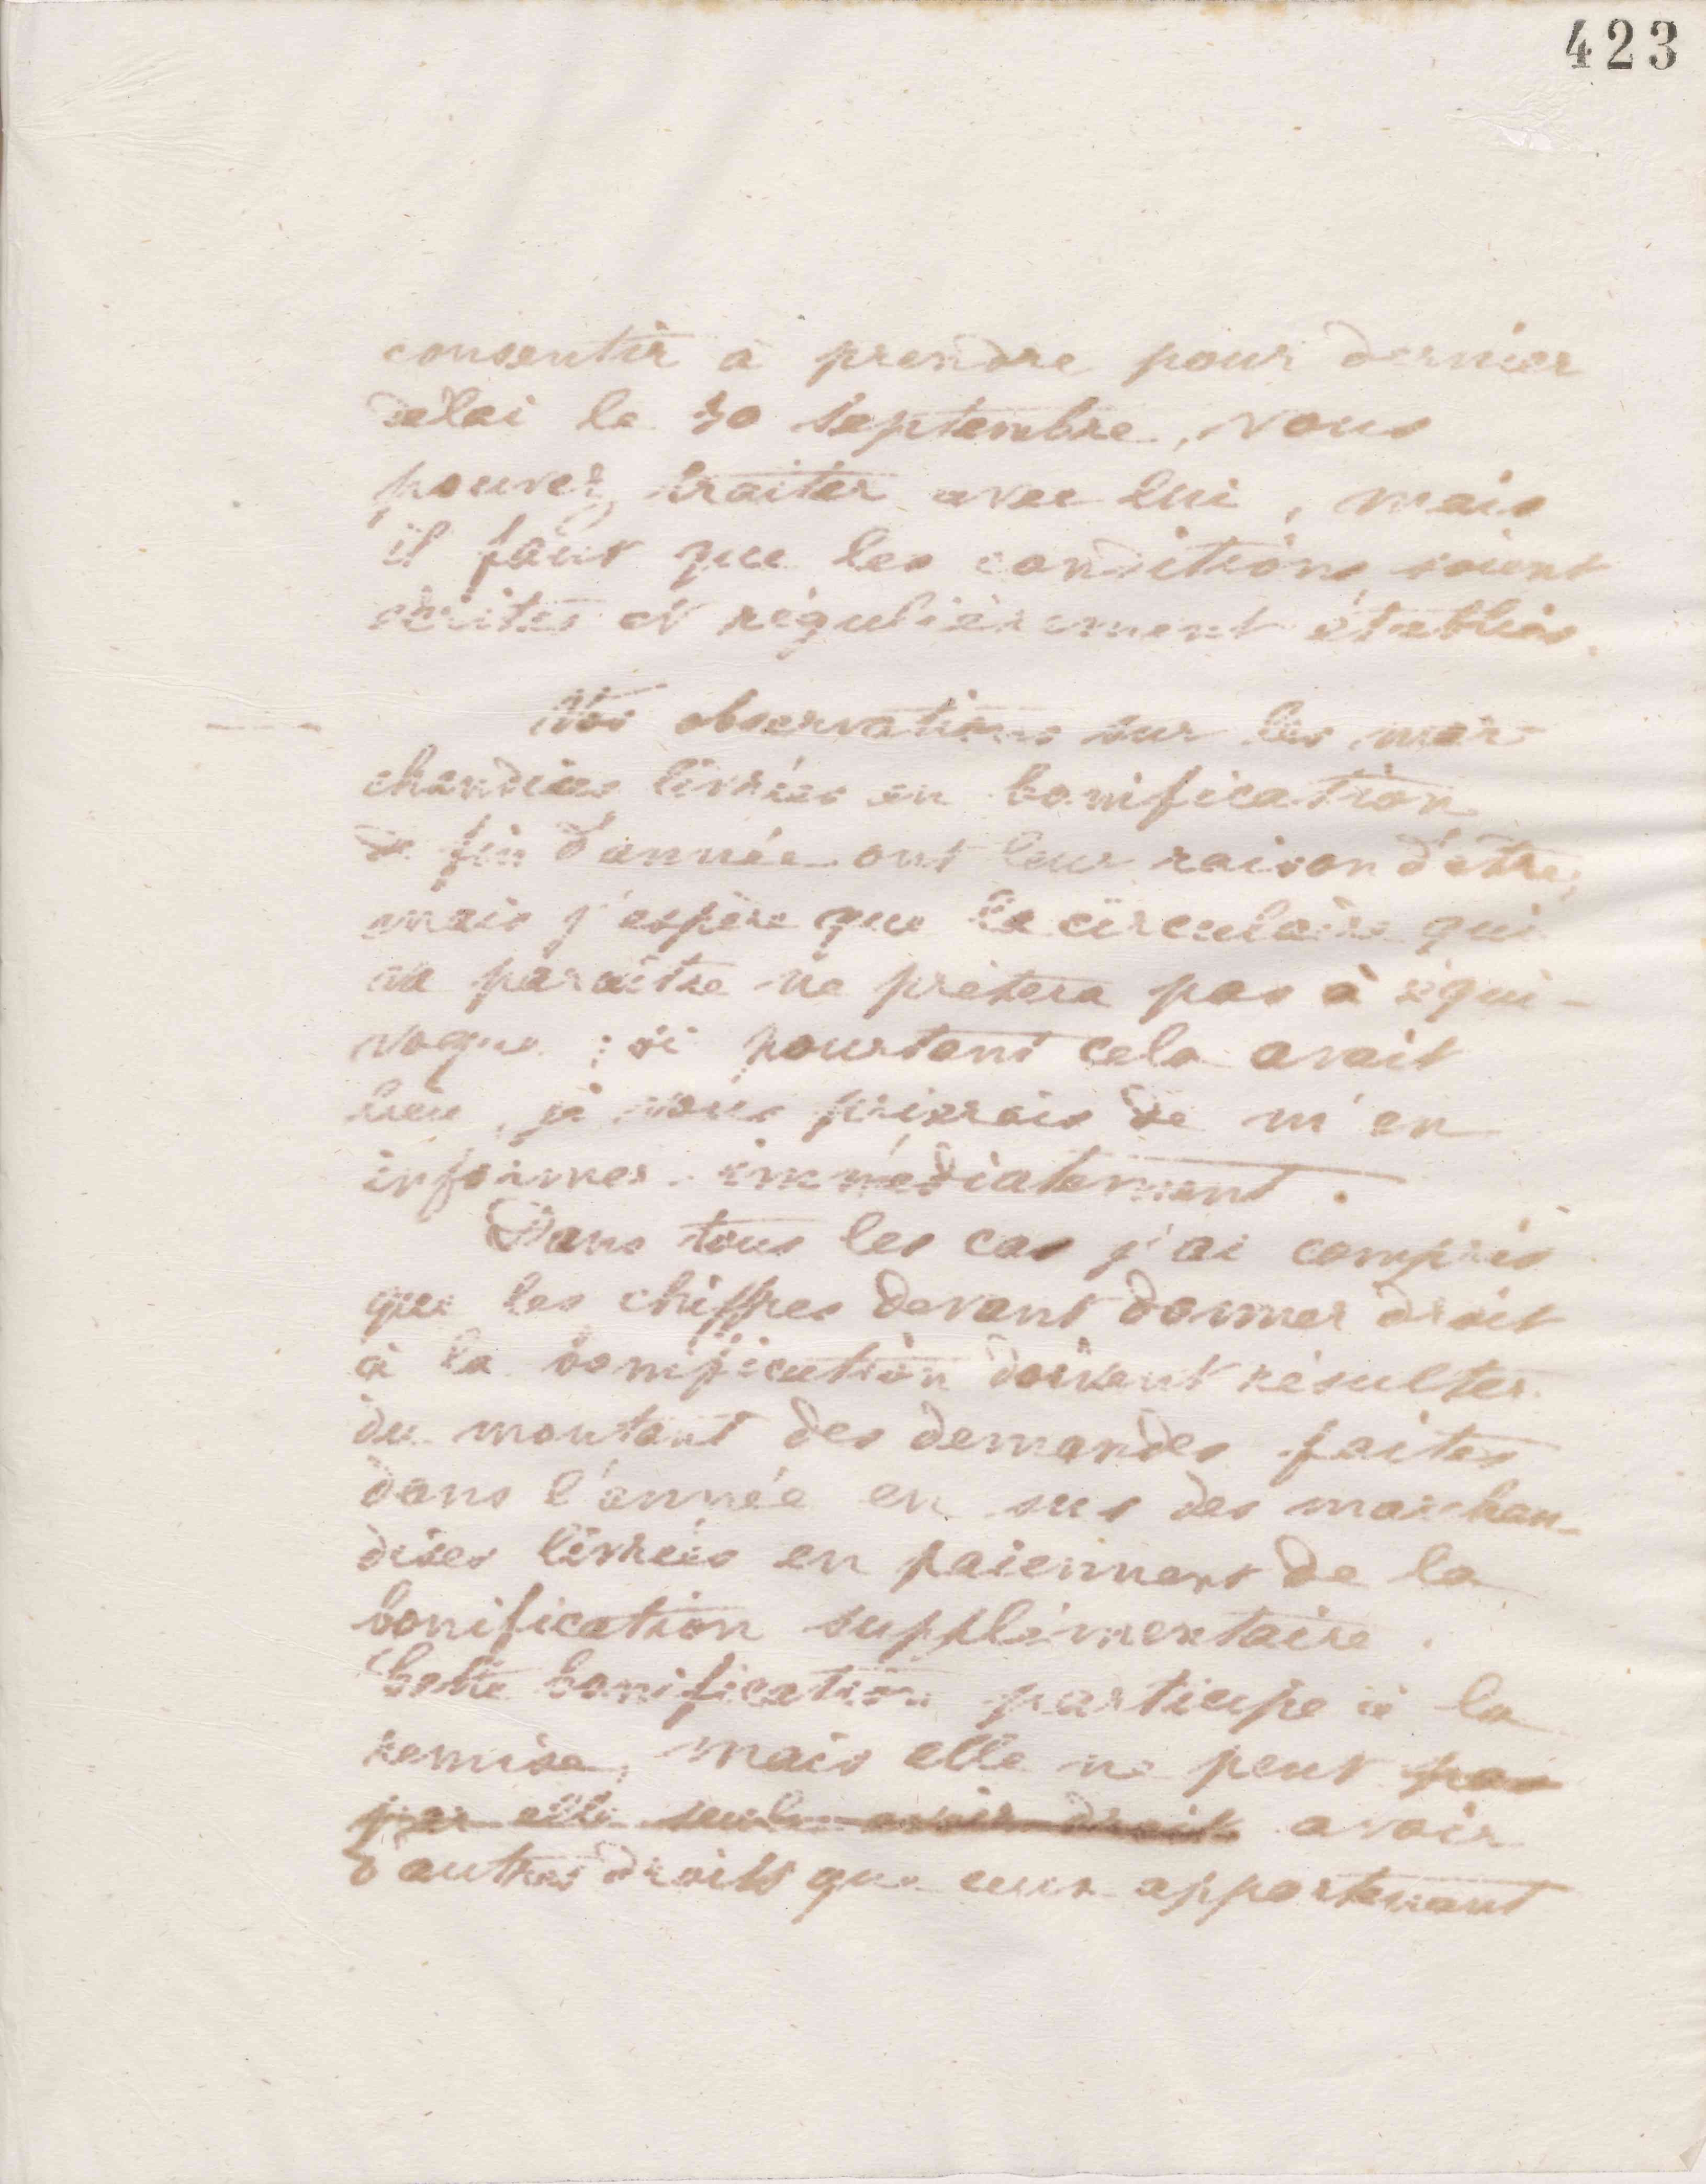 423
consentir à prendre pour dernier
délai le 30 Septembre, vous
pouvez traiter avec lui, mais
il faut que les conditions soient
écrites et régulièrement établies.
Vos observations sur les mar-
chandises livrées en bonification
de fin d'année ont leur raison d'être;
mais j'espère que la circulaire qui
va paraître ne prêtera pas à équi-
voque ; si pourtant cela avait
lieu, je vous prierais de m'en
informer immédiatement.
Dans tous les cas j'ai compris
que les chiffres devant donner droit
à la bonification doivent résulter
du montant des demandes faites
dans l'année en sus des marchan-
dises livrées en paiement de la
bonification supplémentaire.
Cette bonification participe à la
remise, mais elle ne peut pas
par elle seule avoir droit avoir
d'autres droits que ceux appartenant